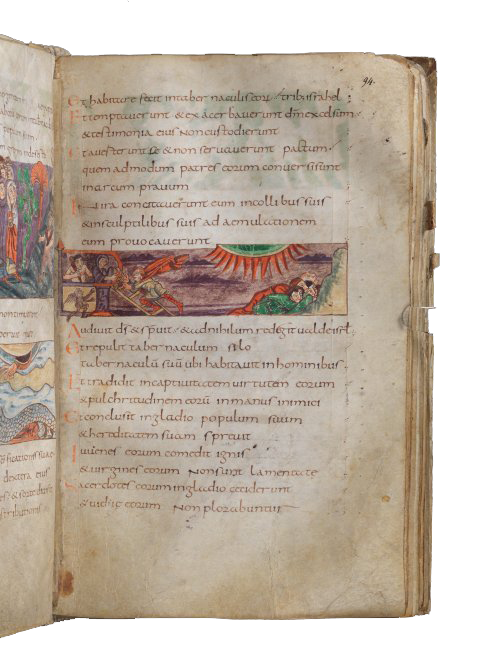 nontimuer
ficationis suae
dextera eius
stributionis
94.
Et habitare fecit intabernaculis eoru tribus israhel
Et temptauerunt & exacerbauerunt dm excelsum
& testimonia eius non custodierunt
Et auerterunt se & non seruauerunt pactum
quem admodum patres eorum conuersi sunt
in arcum prauum
In ira concitauerunt eum incollibus suis
& insculptilibus suis ad aemulationem
eum prouocauerunt
Audiuit ds & spreuit & adnihilum redegit ualde isrl
Et repulit tabernaculum silo
tabernaculu suu ubi habitauit inhominibus
Et tradidit incaptiuitatem uirtutem eorum
& pulchritudinem eoru inmanus inimici
Et conclusit ingladio populum suum
& hereditatem suam spreuit
Iuuenes eorum comedit ignis
& uirgines eorum non sunt lamentate
Sacerdotes eorum ingladio ceciderunt
& uiduae eorum non plorabuntur